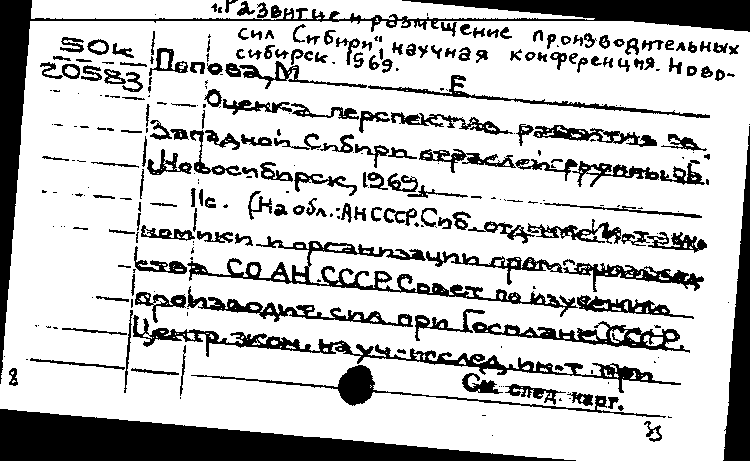 "Развитие и размещение производительных
сил Сибири", научная конференция. Ново-
сибирск. 1969.
50к
20583
Попова, М
Е
Оценка перспектив развития в
Западной Сибири отраслей группы "Б".
Новосибирск, 1969.
11с. (На обл.: АН СССР. Сиб. отд-ние. Ин-т эко-
номики и организации пром. производ-
ства СО АН СССР. Совет по изучению
производит. сил при Госплане СССР.
Центр. экон. науч.-исслед. ин-т при
См. след. карт.
8
33